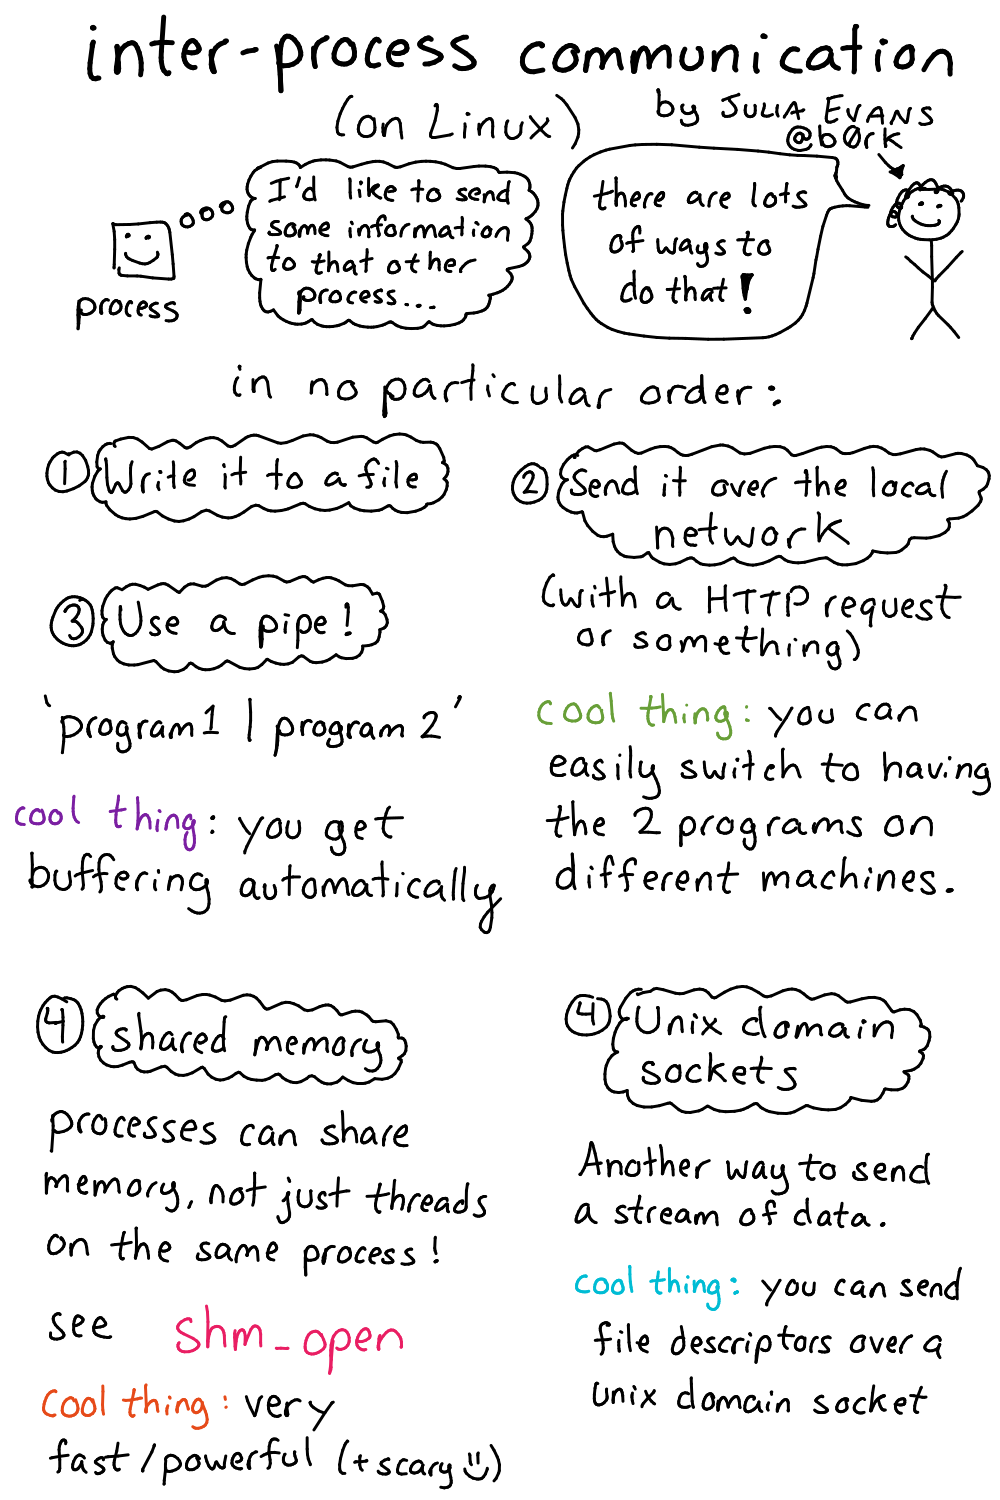 inter-process communication
(on Linux)
by JULIA EVANS
@b0rk
I'd like to send
some information
to that other
process...
process
there are lots
of ways to
do that!
in no particular order:
① Write it to a file
② Send it over the local
network
(with a HTTP request
or something)
cool thing: you can
easily switch to having
the 2 programs on
different machines.
③ Use a pipe!
`program1 | program 2´
cool thing: you get
buffering automatically
④ shared memory
processes can share
memory, not just threads
on the same process!
see shm_open
cool thing: very
fast/powerful (+scary ü)
④ Unix domain
sockets
Another way to send
a stream of data.
cool thing: you can send
file descriptors over a
unix domain socket